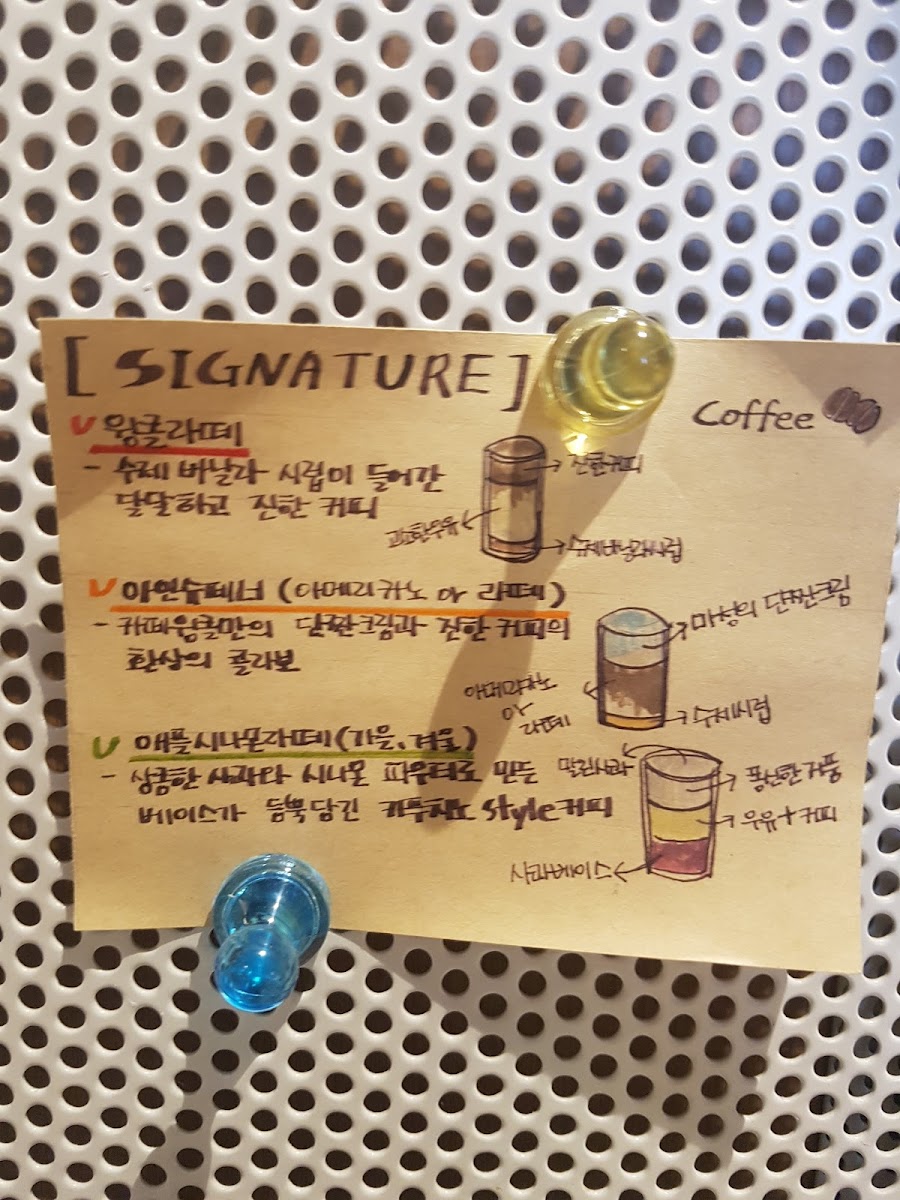 [ SIGNATURE ]
Coffee
윙클라떼
- 수제 바닐라 시럽이 들어간
달달하고 진한 커피
진한커피
고소한우유
수제바닐라시럽
아인슈페너 (아메리카노 or 라떼)
- 카페윙클만의 단짠크림과 진한 커피의
환상의 콜라보
마성의 단짠크림
아메리카노
or
라떼
수제시럽
애플시나몬라떼(가을, 겨울)
- 상큼한 사과와 시나몬 파우더로 만든
베이스가 듬뿍담긴 카푸치노 style커피
말린사과
풍신한거품
우유+커피